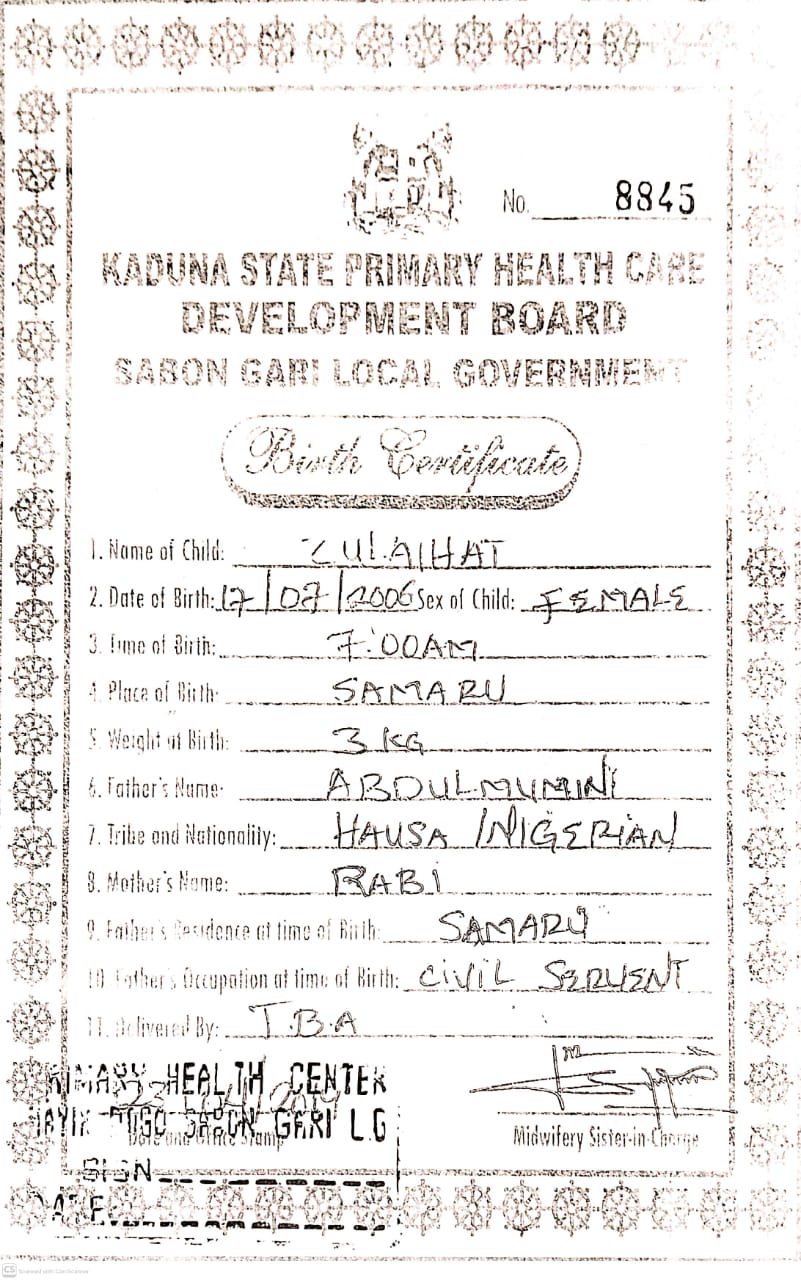 No. 8845
KADUNA STATE PRIMARY HEALTH CARE
DEVELOPMENT BOARD
SABON GARI LOCAL GOVERNMENT
Birth Certificate
1. Name of Child: ZULAIHAT
2. Date of Birth: 17/07/2006 Sex of Child: FEMALE
3. Time of Birth: 7:00AM
4. Place of Birth: SAMARU
5. Weight at Birth: 3 KG
6. Father's Name: ABDULMUMINI
7. Tribe and Nationality: HAUSA / NIGERIAN
8. Mother's Name: RABI
9. Father's Residence at time of Birth: SAMARU
10. Father's Occupation at time of Birth: CIVIL SERVENT
11. Delivered By: T.B.A
PRIMARY HEALTH CENTER
SABON GARI L.G
Date and Office Stamp
Midwifery Sister-in-Charge
SIGN
DATE
CS Scanned with CamScanner